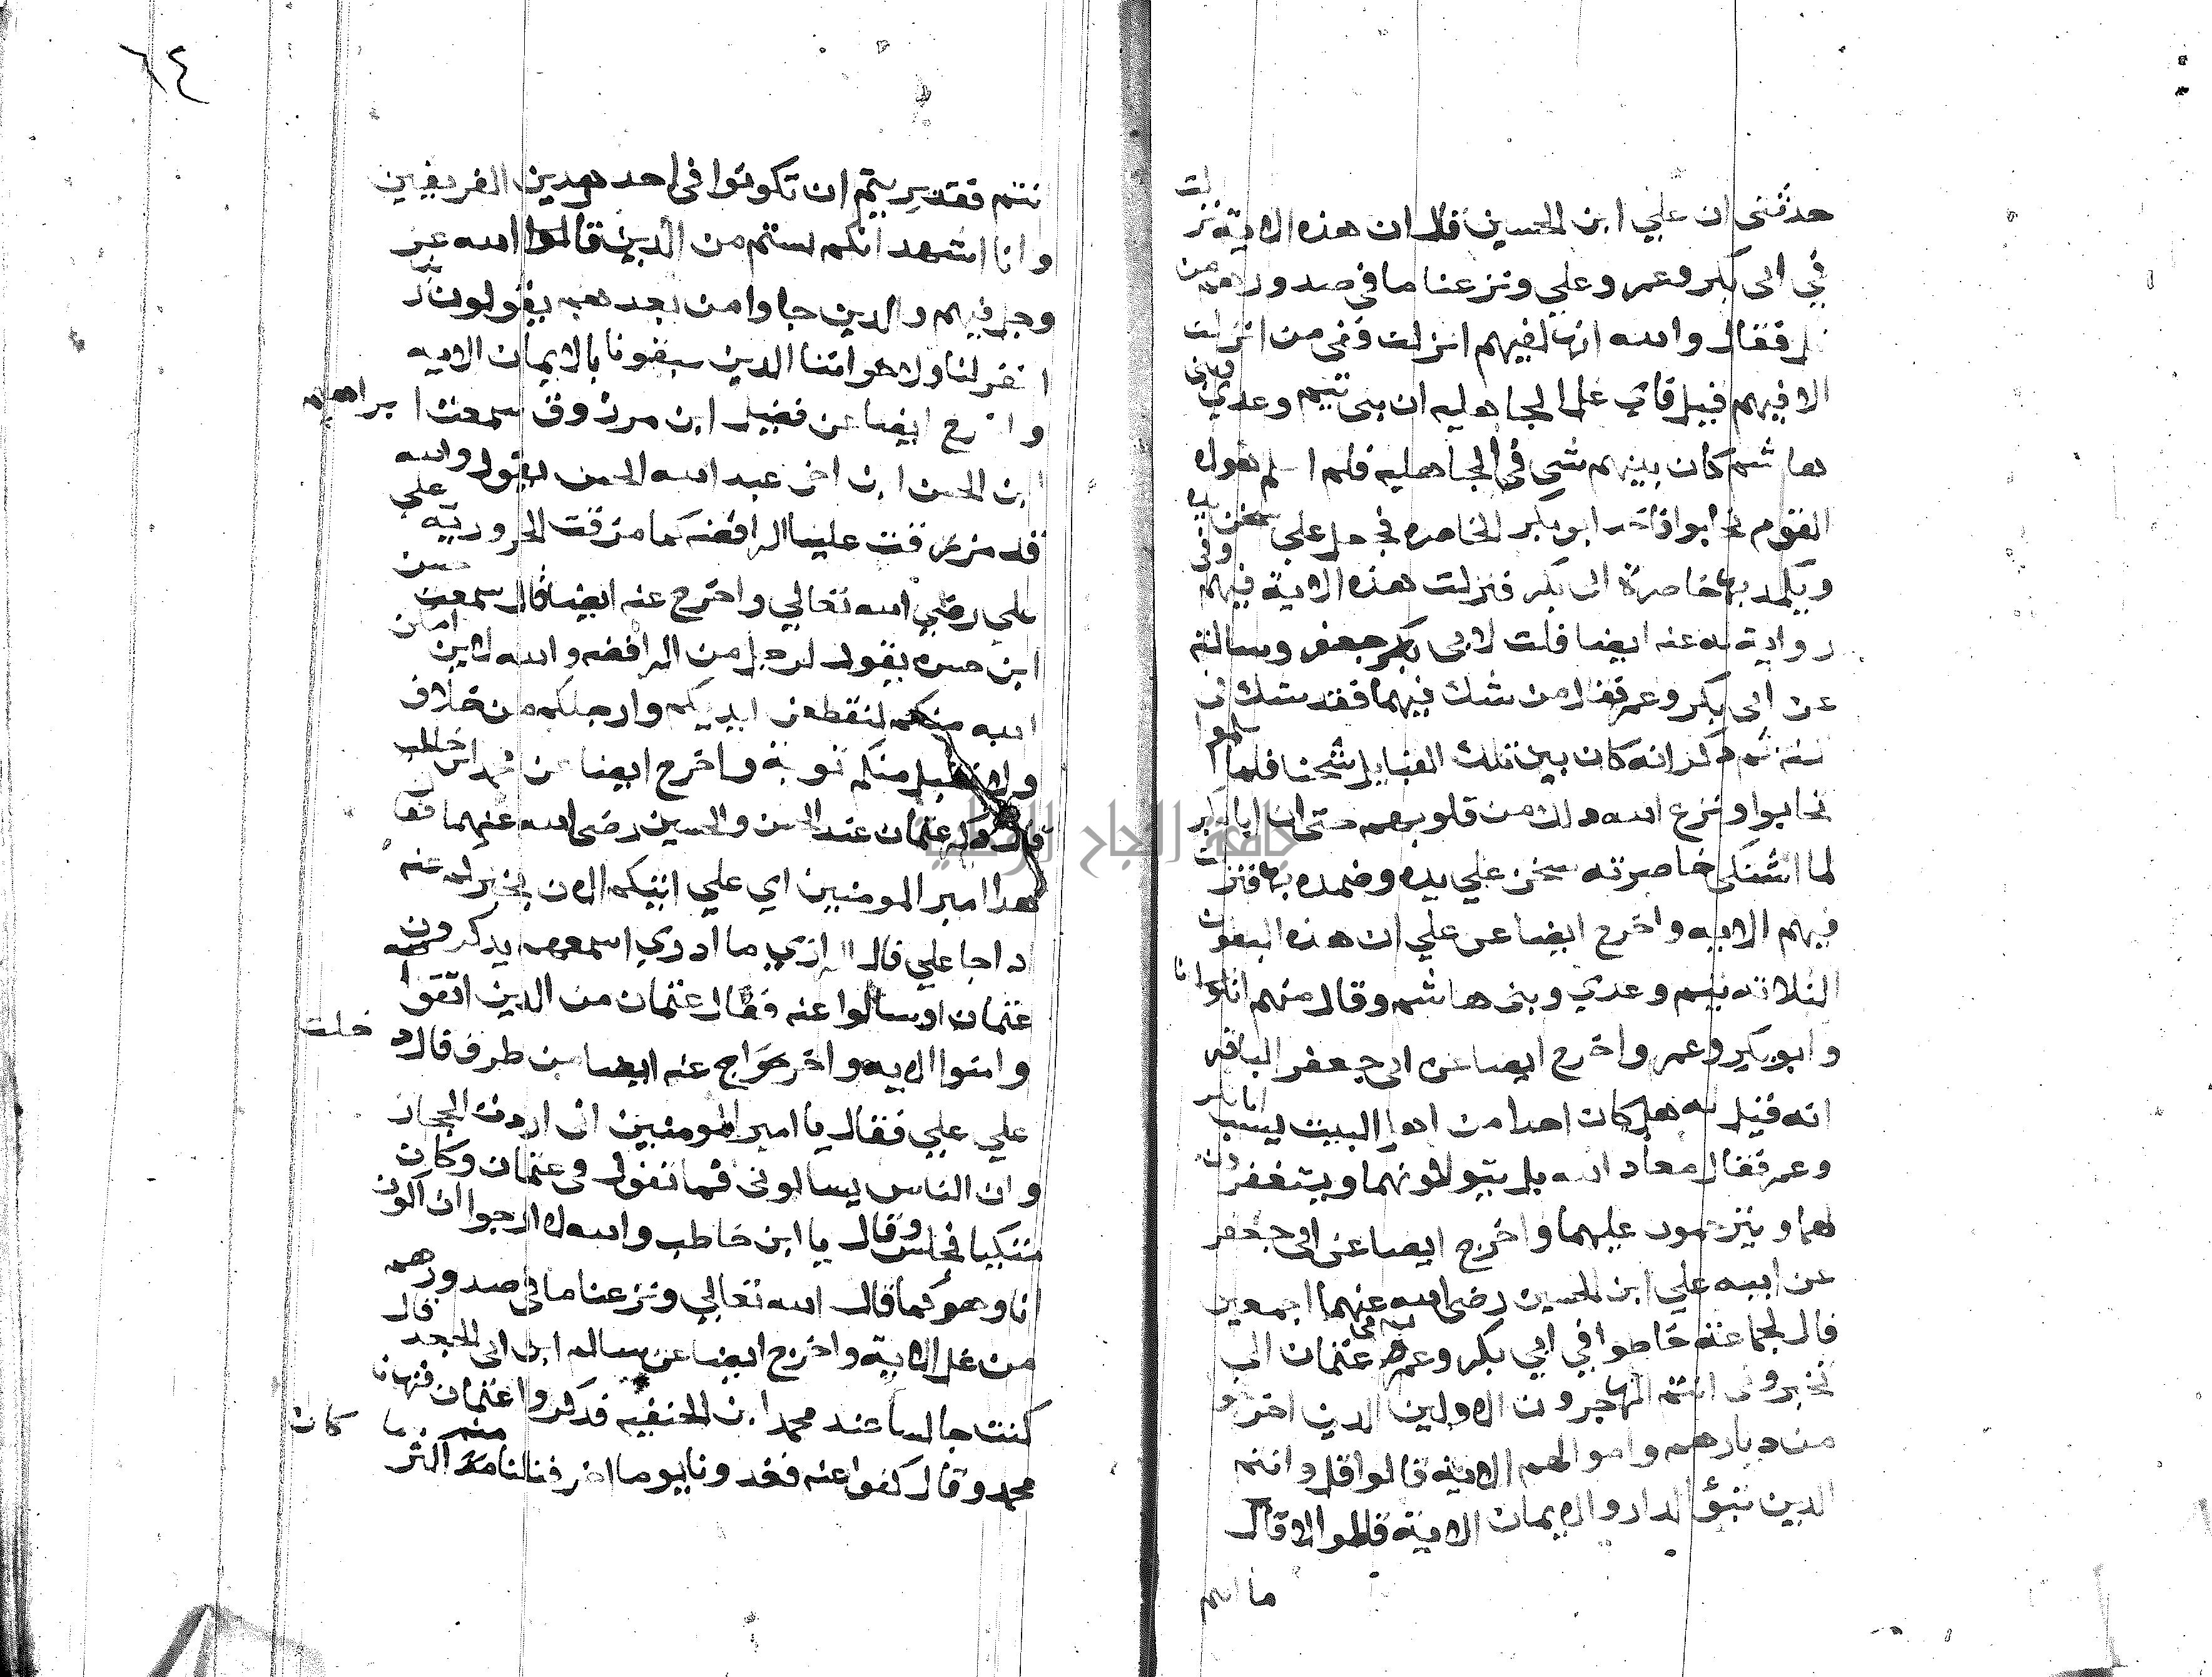 حدثني ان علي ابن الحسين قال ان هذه الاية نزلت
في ابي بكر وعمر وعلي ونزعنا ما في صدورهم من
غل فقال والله انها لفيهم انزلت وفي من انزلت
الا فيهم قيل فاي غل الجاهليه ان بني تيم وعدي وبني
هاشم كان بينهم شي في الجاهليه فلما اسلم هولاء
القوم تحابوا فاخذ ابو بكر الخاصره فجعل علي سخن يده
ويكمد بها خاصرة ابي بكر فنزلت هذه الاية فيهم وفي
رواية له عنه ايضا قلت لابي جعفر وسالته
عن ابي بكر وعمر فقال من شك فيهما فقد شك في
السنه ثم ذكر انه كان بين تلك القبايل شحنا فلما اسلموا
تحابوا ونزع الله ذلك من قلوبهم حتى ان ابا بكر
لما اشتكى خاصرته سخن علي يده وضمده بها فنزلت
فيهم الايه واخرج ايضا عن علي ان هذه البطون
الثلاثه تيم وعدي وبني هاشم وقال منهم انا
وابو بكر وعمر واخرج ايضا عن ابي جعفر الباقر
انه قيل له هل كان احدا من اهل البيت يسب ابا بكر
وعمر فقال معاذ الله بل يتولونهما ويستغفرون
لهما ويترحمون عليهما واخرج ايضا عن ابي جعفر
عن ابيه علي ابن الحسين رضى الله عنهما اجمعين
قال لجماعة خاطوا في ابي بكر وعمر عثمان الى
تخبروني انتم المهاجرون الاولين الدين اخرجوا
من ديارهم واموالهم الاية قالوا قل وانتم
الدين تبوؤ الدار والايمان الاية قالوا لا قال
ما انتم
٦٤
نتم فقد بريتم ان تكونوا في احد هدين الفريقين
وانا اشهد انكم لستم من الدين قال الله عز
وجل فيهم والدين جاوا من بعدهم يقولون ربنا
اغفر لنا ولاخواننا الدين سبقونا بالايمان الايه
واخرج ايضا عن فضيل ابن مرزوق سمعت ابراهيم
ابن الحسن ابن اخي عبد الله الحسن يقول والله
قد مرقت علينا الرافضه كما مرقت الحروريه على
علي رضي الله تعالي واخرج عنه ايضا قال سمعت حسن
ابن حسن يقول لرجل من الرافضه والله لاين امكن
الله منكم لنقطعن ايديكم وارجلكم من خلاف
ولا نقبل منكم توبة واخرج ايضا عن محمد ابن خاطب
قال ذكر عثمان عند الحسن والحسين رضى الله عنهما فقا
هدا امير المومنين اي علي اتيكم الان يخبركم عنه
اد اجا علي قال الرازي ما ادري اسمعهم يدكرون
عثمان او سالوا عنه فقال عثمان من الدين اتقوا
وامنوا الايه واخرج عنه ايضا من طرف قال دخلت
علي علي فقال يا امير المومنين اني اردت الحجاز
وان الناس يسالوني فما تقول في عثمان وكان
متكيا فجلس وقال يا ابن خاطب والله لارجوا ان اكون
انا وهو كما قال الله تعالي ونزعنا ما في صدورهم
من غل الاية واخرج ايضا عن سالم ابن ابي الجعد قال
كنت جالسا عند محمد ابن الحنفيه فدكروا عثمان فنهانا
محمد وقال كفوا عنه فغدونا يوما اخر فنلنا منه اكثر مما كان